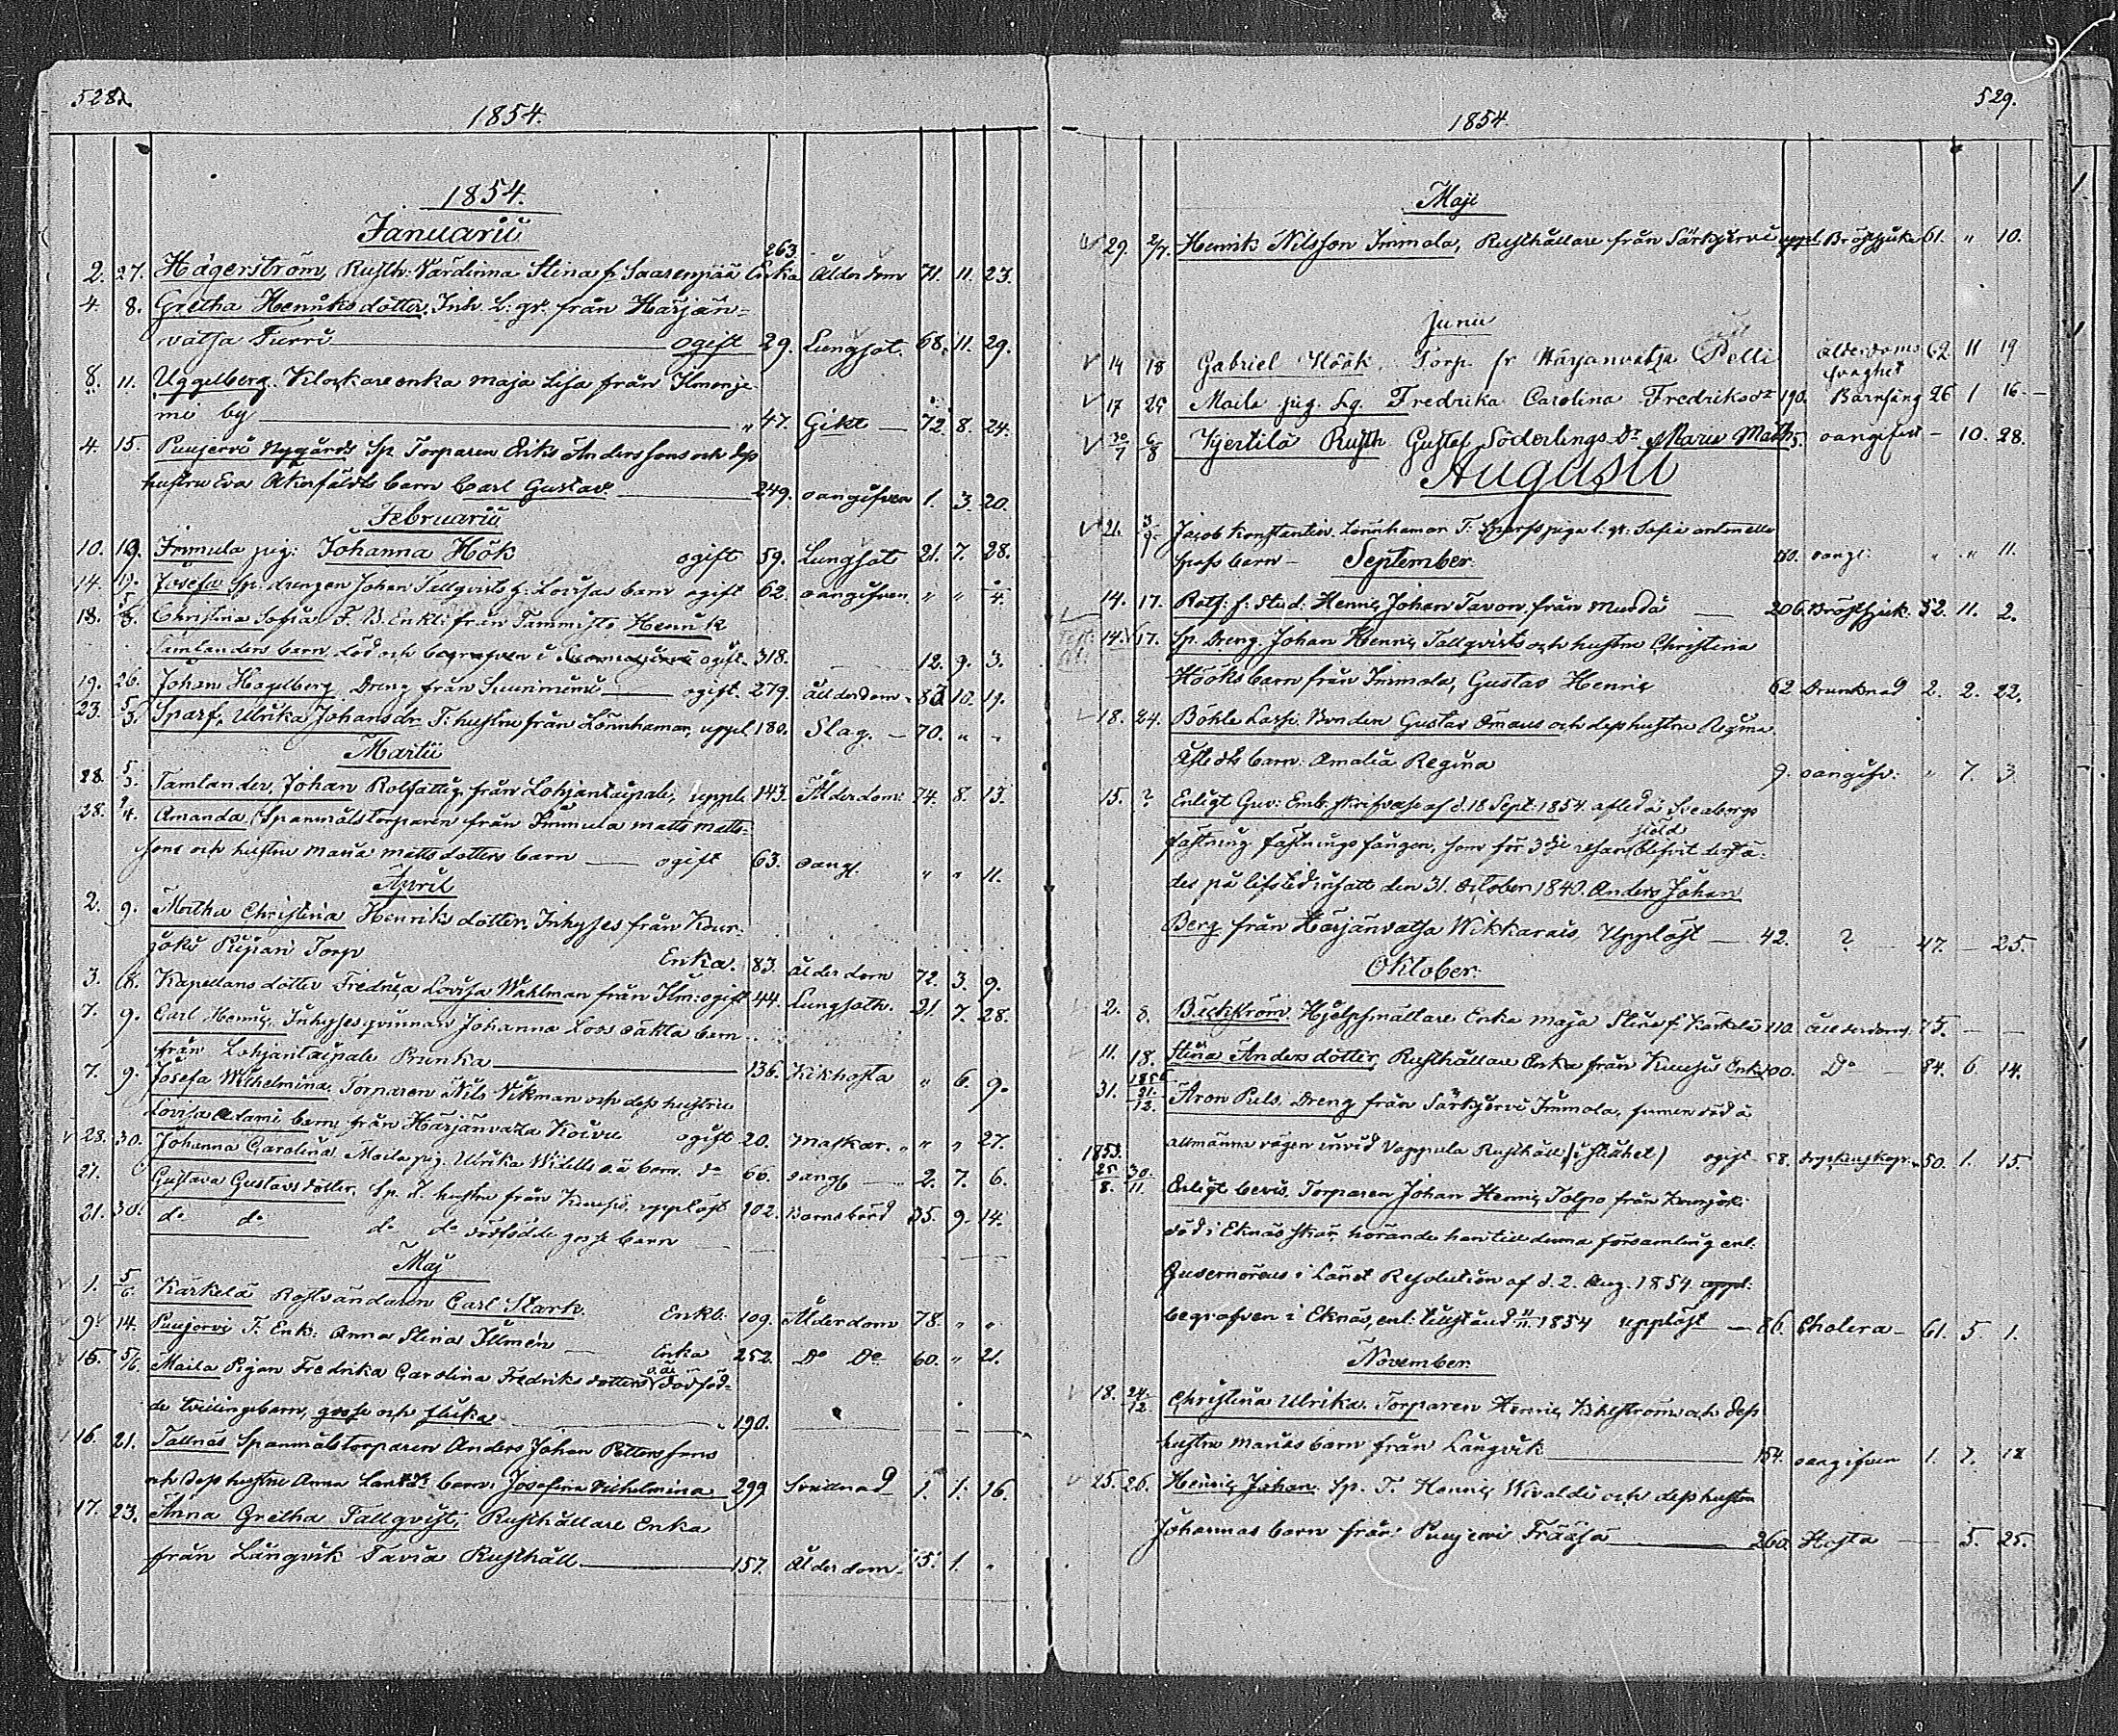 528.
1854.
1854.
Januarii
263.
2. 27. Hägerström, Rusth. Värdinna Stina f. Saarenpää Enka Ålderdom 71. 11. 23.
4. 8. Gretha Henriksdotter. Inh. L: gr. från Härjän-
vatsa Turri ogift 29. Lungsot. 68. 11. 29.
8. 11. Uggelberg. Klockareenka Maja Lisa från Ilmenje-
mi by " 47. Gikt — 72. 8. 24.
4. 15. Puujervi Nygårds Sp. Torparen Eriks Anderssons och dess
hustru Eva Åkerfäldts barn Carl Gustav. 249. oangifven 1. 3. 20.
Februarii
10. 19. Immula pig: Johanna Hök ogift 59. Lungsot 21. 7. 28.
14. 19. Josefa Sp. drengen Johan Tallqvists h. Lovisas barn ogift 62. oangifven. " " 4.
18. Christina Sofia T. B. Enkl: från Tammisto Henrik
Tamlanders barn död och begrafven i ogift. 318. 12. 9. 3.
19. 26. Johan Hagelberg Dreng från Suurniemi — ogift. 279. ålderdom 80. 10. 19.
23. 5/3. Sparf, Ulrika Johansdr T: hustru från Lönnhamar, uppl. 180. Slag. — 70. " "
Martii
28. 5/3. Tamlander, Johan Rotfattig från Lohjantaipale, uppl. 143. Ålderdom: 74. 8. 13.
28. 2/4. Amanda, Spanmålstorparen från Immula Matts Matts-
sons och hustru Maria Mattsdotters barn — ogift 63. oangf. " " 11.
April
2. 9. Martha Christina Henriksdotter, Inhyses från Kour-
joki Pipari Torp Enka. 83. ålderdom 72. 3. 9.
3. 8. Kapellans dotter Fredrica Lovisa Wahlman från Ilm: ogift 44. Lungsoth. 21. 7. 28.
7. 9. Carl Henric, Inhyses qvinnan Johanna Loos oäkta barn
från Lohjantaipale Prunka 136. Kikhosta " 6. 9.
7. 9. Josefa Wilhelmina Torparen Nils Vikman och dess hustru
Lovisa Adami barn från Härjänvatza Koivu ogift 20. Maskar. " " 27.
28. 30. Johanna Carolina. Maila pig. Ulrika Widells o.ä barn. do 66. oangf — 2. 7. 6.
21. Gustava Gustavsdotter. Sp. T. hustru från Kuusis. uppläst 102. Barnsbörd 35. 9. 14.
21. 30. do do do do dödfödde gosse barn —
Maj
1. 5/6. Kärkelä Rostvändaren Carl Stark. Enkl. 109. Ålderdom 78. " "
9. 14. Puujervi T. Enk: Anna Stina Illmén — Enka 252. Do Do 60. " 21.
15. 5/6. Maila Pigan Fredrika Carolina Fredriksdotters o.ä. dödföd-
de tvillingebarn, gosse och flicka 190.
16. 21. Tallnäs Spanmålstorparen Anders Johan Petterssons
och dess hustru Anna barn: Josefina Vilhelmina 299 1. 1. 16.
17. 23. Anna Gretha Tallqvist, Rusthållare Enka
från Långvik Tavia Rusthåll 157. Ålderdom. 75. 1. "
529.
1854.
Maji
29. 2/7. Henrik Nilsson Immola, Rusthållare från Särkjärvi uppl. Bröstsjuka 61. " 10.
Junii
14 18 Gabriel Höök. Torp. fr Härjänvatza Pelli Ålderdoms-
svaghet 62 11 19
17 25 Maila pig. Lg. Fredrika Carolina Fredriksdr 190. Barnsäng 26 1 16
30/7 6/8 Kjertilä Rusth Gustaf Söderlings Dr Maria Math oangifvet — 10. 28.
Augusti
21. 3/9. Jacob Konstantin. Lönnhamar T: Sparfs piga l: gr: Sofia Antonetta
barn — 180. oangf: " " 11.
September.
14. 17. Rotf: f: Stud: Henric Johan Tavon, från — 206. Bröstsjuk. 52. 11. 2.
14. 17. Sp. Dreng. Johan Henric Tallqvists och hustru Christina
Hööks barn från Immola, Gustav Henric 62 Drunknad 2. 2. 22.
18. 24. Böhle Lasse. Bonden Gustav Omans och dess hustru Regina
barn. Amalia Regina 9. oangifv: " 7. 3.
15. ? Enligt Guv: Emb. skrifvelse af d. 18 Sept. 1854. afled å Sveaborgs
fästning fästningsfången, som för 3dje resan stöld blifvit dersta-
des på lifstid insatt den 31. October 1840. Anders Johan
Berg från Härjänvatsa Wikkarais Uppläst — 42. ? 47. — 25.
Oktober.
2. 8. Bäckström Hjelpsmättare Enka Maja Stina f. Kärkelä 110. Ålderdoms. 75. — —
11. 18. Stina Andersdotter, Rusthållare Enka från Kuusis Enka 100. Do 84. 6 14.
31. Aron Puls. Dreng från Särkjervi Immola, funnen död å
allmänna vägen invid Vappula Rusthåll (i slädhet) ogift 58. 50. 1. 15.
1853.
25/8. 30/11. Enligt bevis, Torparen Johan Henric Tolpo från Kourjoki
död i Eknäs Skär, hörande han till denna församling enl.
Guvernörens i Länet Resolution af d. 2. Aug. 1854. uppl:
begrafven i Eknäs, enl: 1854 uppläst — 86. Cholera — 61. 5. 1.
November.
18. 24/12. Christina Ulrika. Torparen Henric och dess
hustru Marias barn från Långvik 154. oangifven 1. 7. 18
25. 26. Henric Johan. Sp. T. Henric Wivaldi och dess hustru
Johannas barn från Puujervi Trääsä 260. Hosta — 5. 25.